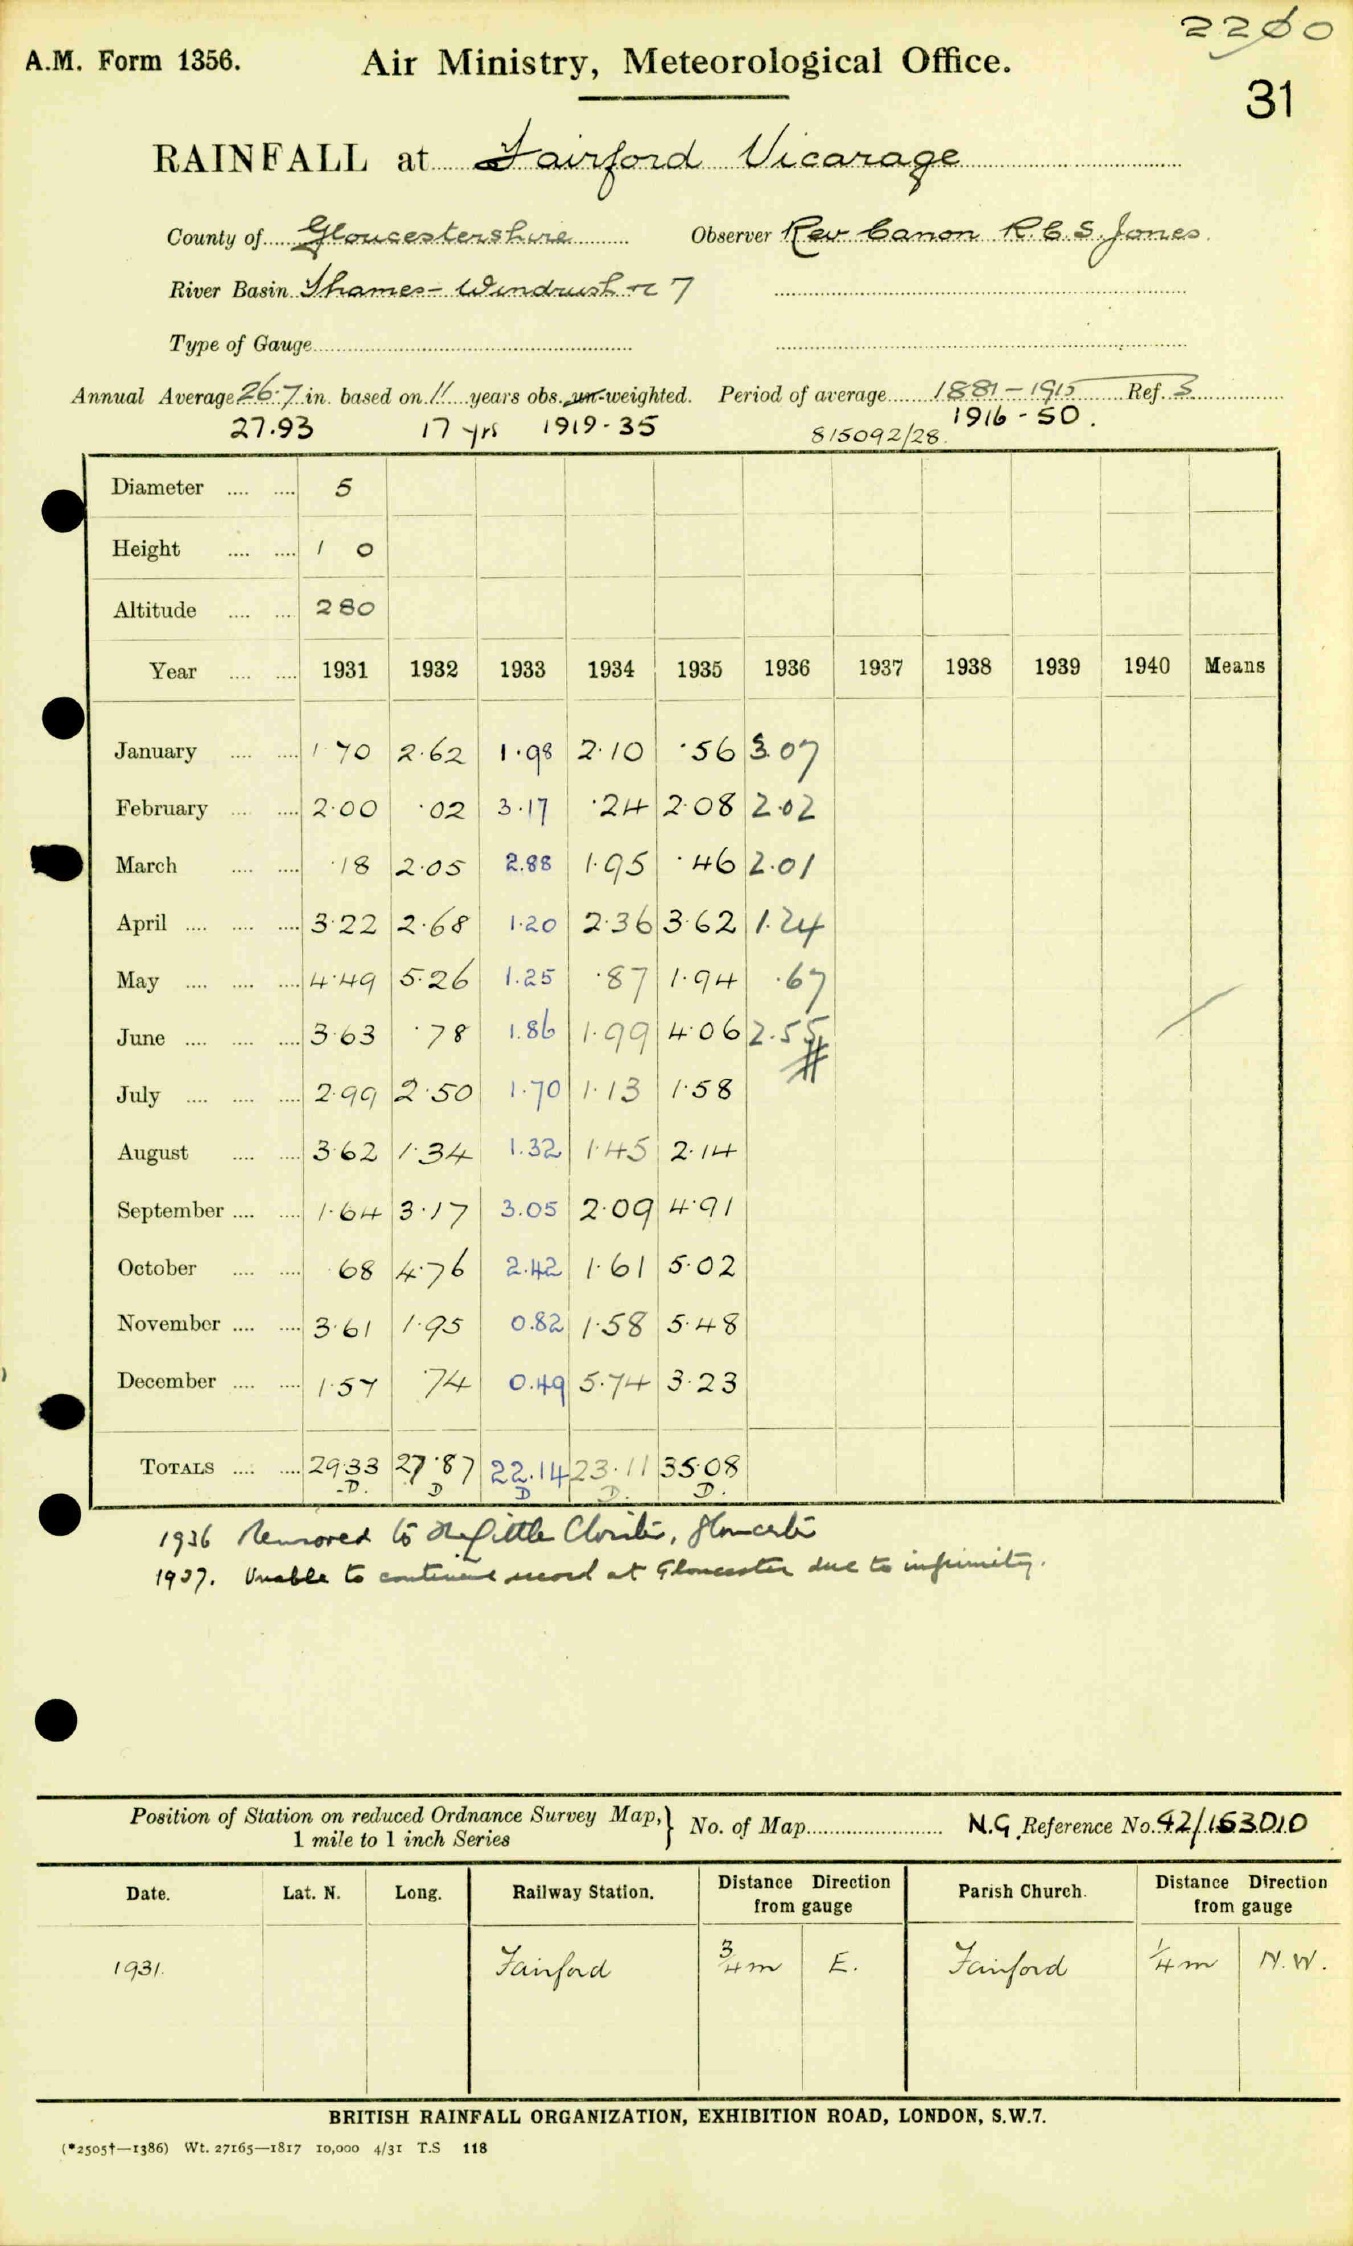 2260
A.M. Form 1356. Air Ministry, Meteorological Office.
31
RAINFALL at Fairford Vicarage
County of Gloucestershire Observer Rev Canon R.C.S. Jones
River Basin Thames - Windrush 7
Type of Gauge
Annual Average 26.7 in. based on 11 years obs. un-weighted. Period of average 1881-1915 Ref. S
27.93 17 yrs 1919-35 815092/28. 1916-50.
Diameter .... .... 5
Height .... .... 1 0
Altitude .... .... 280
Year .... .... 1931 1932 1933 1934 1935 1936 1937 1938 1939 1940 Means
January .... .... 1.70 2.62 1.98 2.10 .56 3.07
February .... .... 2.00 .02 3.17 .24 2.08 2.02
March .... .... .18 2.05 2.88 1.95 .46 2.01
April .... .... .... 3.22 2.68 1.20 2.36 3.62 1.24
May .... .... .... 4.49 5.26 1.25 .87 1.94 .67
June .... .... .... 3.63 .78 1.86 1.99 4.06 2.55
July .... .... .... 2.99 2.50 1.70 1.13 1.58
August .... .... 3.62 1.34 1.32 1.45 2.14
September .... .... 1.64 3.17 3.05 2.09 4.91
October .... .... .68 4.76 2.42 1.61 5.02
November .... .... 3.61 1.95 0.82 1.58 5.48
December .... .... 1.57 .74 0.49 5.74 3.23
TOTALS .... .... 29.33 27.87 22.14 23.11 35.08
D. D D D. D.
1936 Removed to The Little Cloister, Gloucester
1937. Unable to continue record at Gloucester due to infirmity.
Position of Station on reduced Ordnance Survey Map, 1 mile to 1 inch Series } No. of Map N.G. Reference No. 42/153010
Date. Lat. N. Long. Railway Station. Distance Direction from gauge Parish Church. Distance Direction from gauge
1931. Fairford 3/4 m E. Fairford 1/4 m N.W.
BRITISH RAINFALL ORGANIZATION, EXHIBITION ROAD, LONDON, S.W.7.
(*2505†—1386) Wt. 27165—1817 10,000 4/31 T.S 118